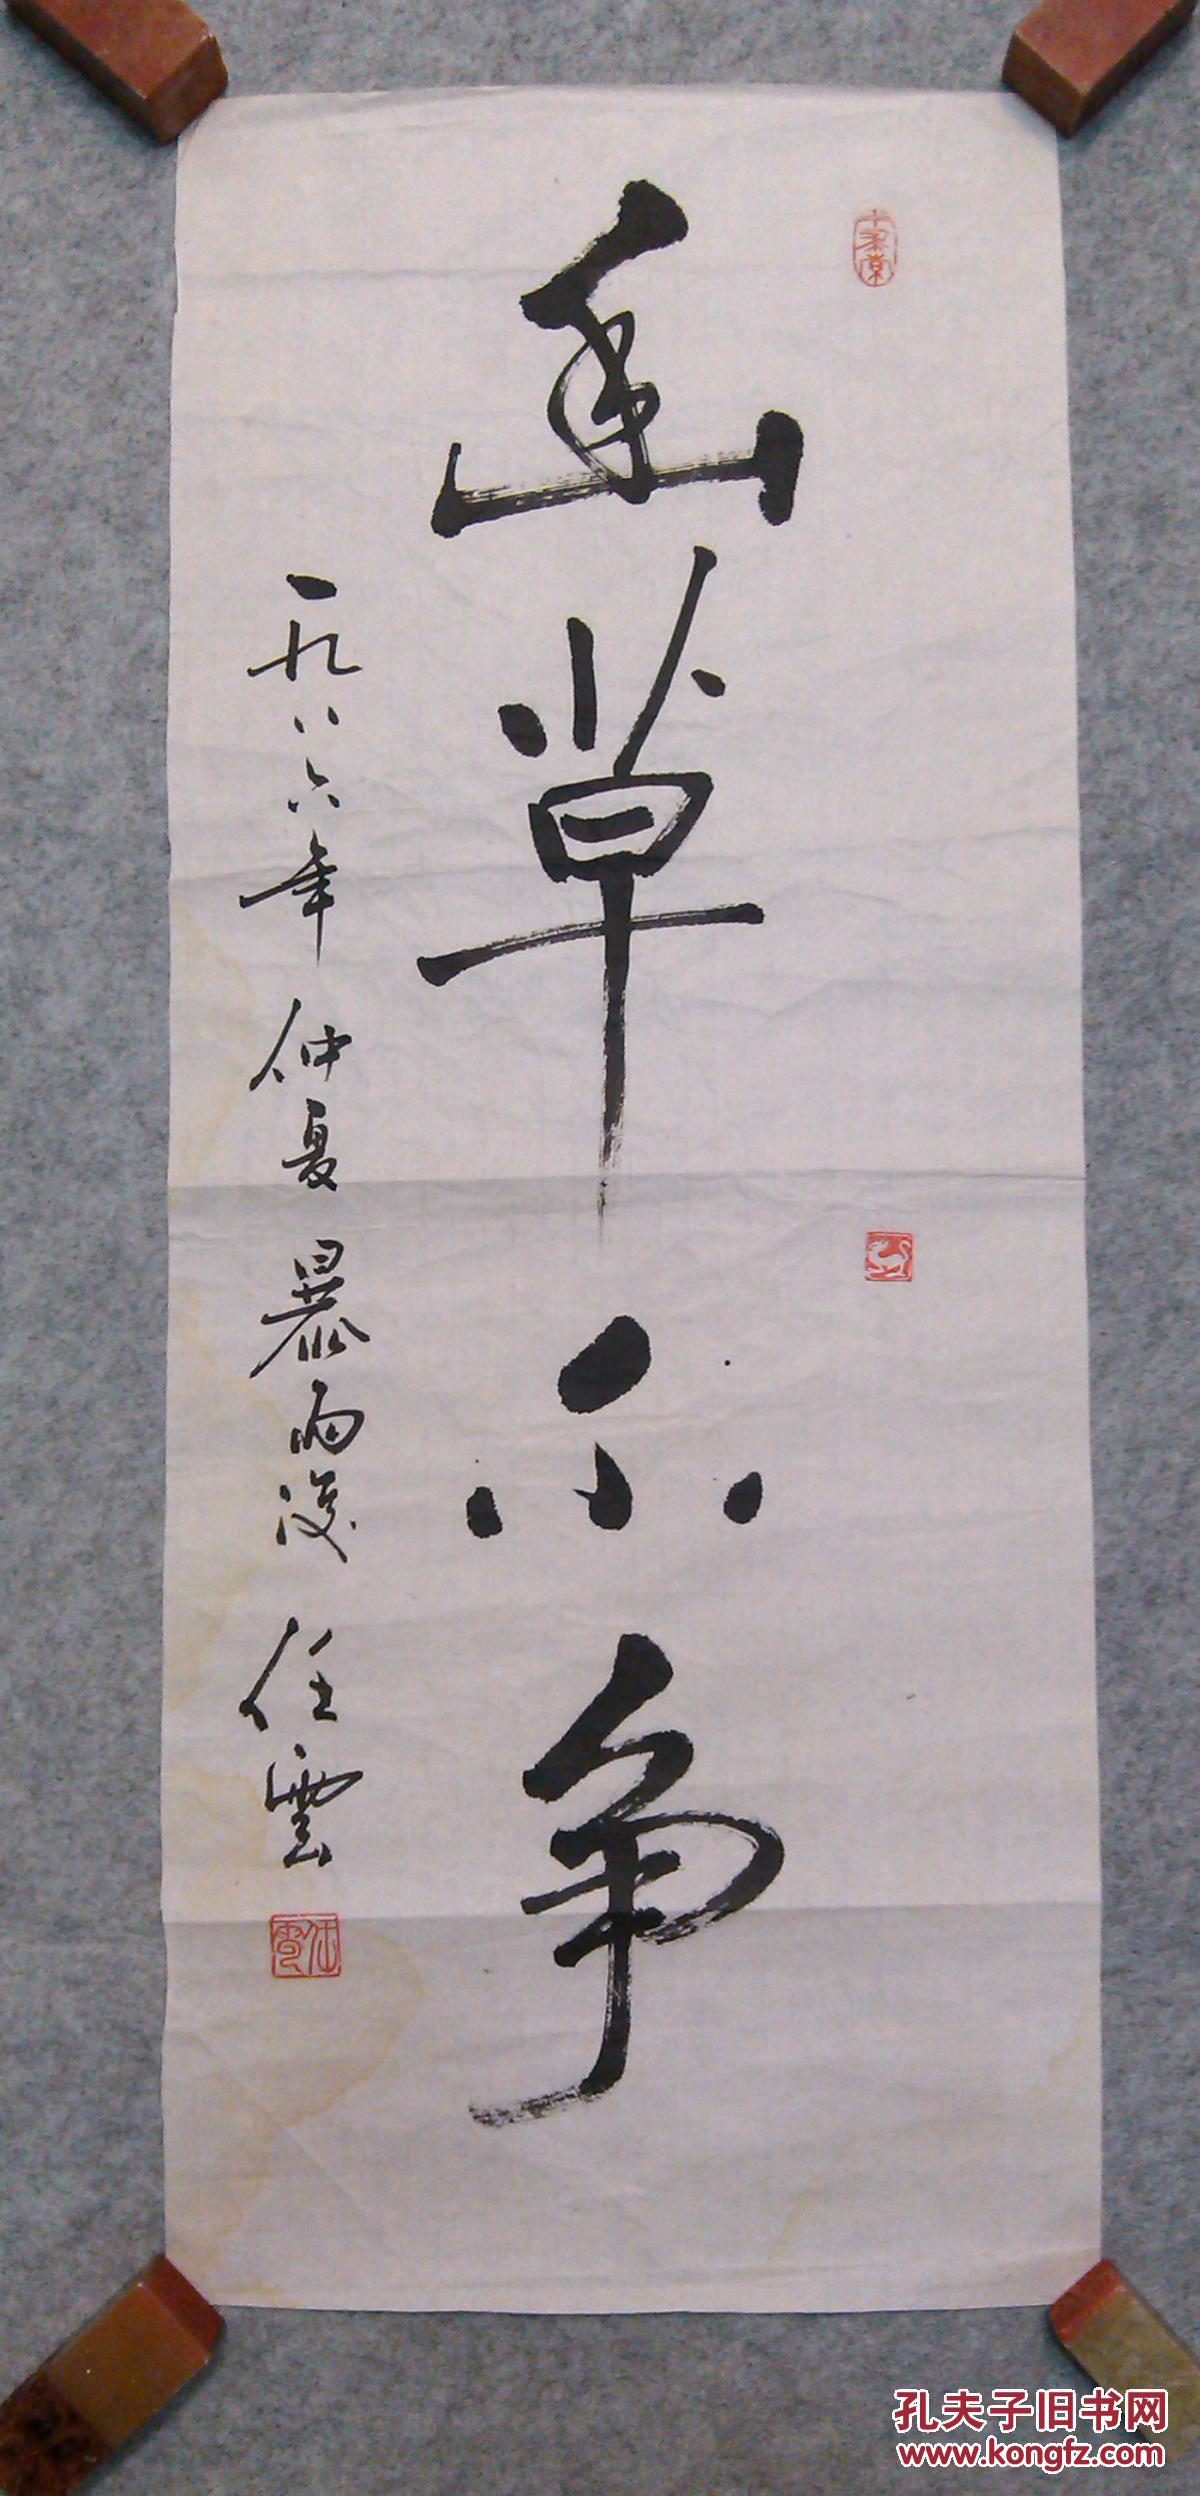 幽草不争
一九八六年 仲夏 暴雨后 任雲
任雲
孔夫子旧书网
www.kongfz.com